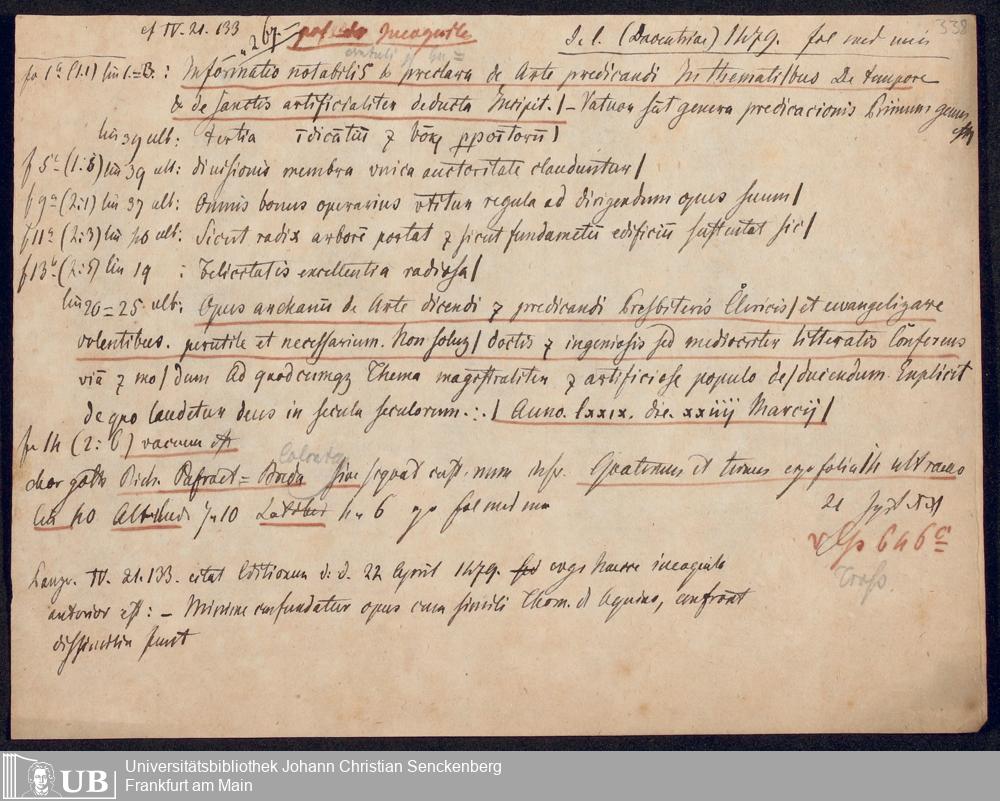 cf IV. 21. 133 267. Incognite S. l. (Daventriae) 1479. fol med min 338
fo 1a (1.1) lin 1.=3. : Informatio notabilis & preclara de Arte predicandi In thematibus De tempore
& de sanctis artificialiter deducta Incipit. / – Vatuor sūt genera predicacionis Primum genus
lin 39 ult: tertia
f 5a (1:5) lin 39 ult: diuisionis membra vnica auctoritate clauduntur /
f 9a (2:1) lin 37 ult: Omnis bonus operarius vtitur regula ad dirigendum opus suum /
f 11a (2:3) lin 40 ult: Sicut radix arborē portat & sicut fundametū edificiū sustentat sic /
f 13b (2:5) lin 19 : Felicitatis excellentia radiosa /
lin 20=25 ult: Opus de Arte dicendi & predicandi Presbiteris Clericis / et ewangelizare
volentibus. perutile et necessarium. Non soluʒ / doctis & ingeniosis sed mediocriter litteratis Cōferens
viā & mo / dum Ad quodcumqʒ Thema magistraliter & artificiose populo de / ducendum. Explicit
de quo laudetur deus in secula seculorum. : . / Anno. lxxix. die. xxiiij Marcij /
fo 14 (2:6) vacuum est
char goth Rich. Pafraet = Breda sine sign custod. num Quaternus et ternus ergo folia 14 ult vacuo
lin 40 Alt 7" 10 Lat 4" 6 ergo fol med min
v. Sp 646
Tross.
Panzr. IV. 21. 133. citat Editionem d: d. 22 April 1479. ergo haecce incognita
anterior est: – Minime confundatur opus cum simili Thom. d Aquino, confront
dissimilia sunt
Universitätsbibliothek Johann Christian Senckenberg
Frankfurt am Main
UB